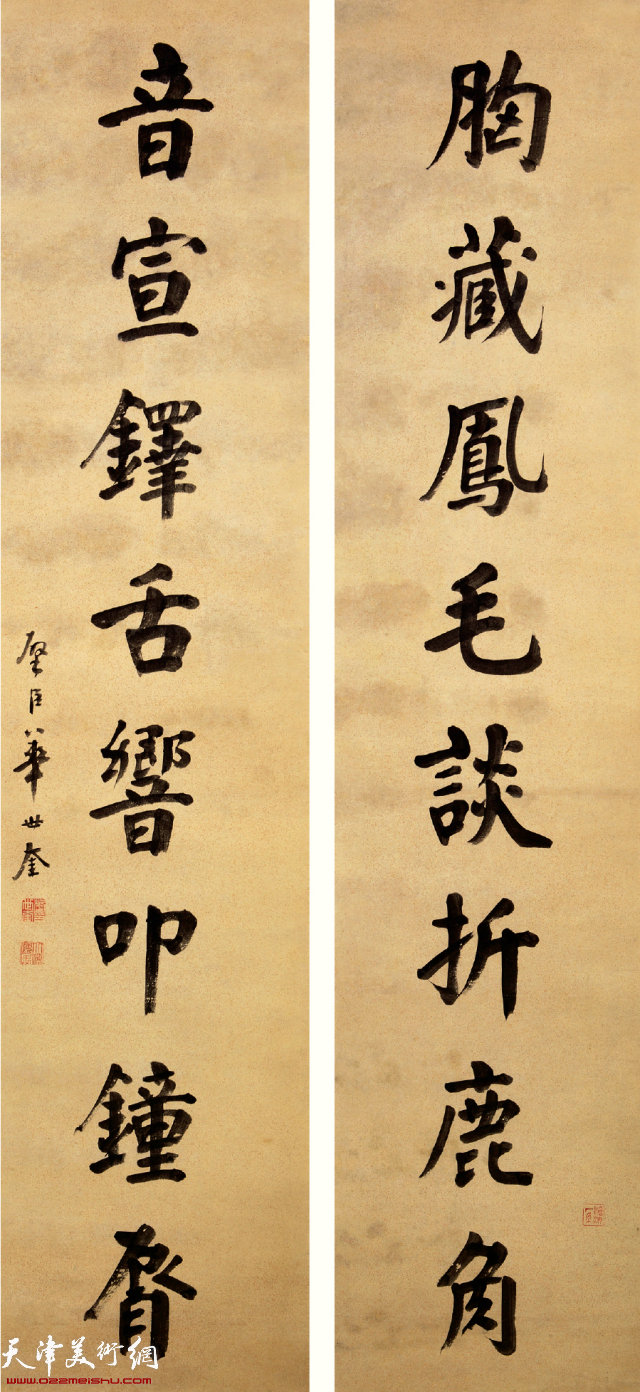 胸藏鳳毛談折鹿角
音宣鐸舌響叩鐘脣
璧臣華世奎
天津美術網
www.022meishu.com